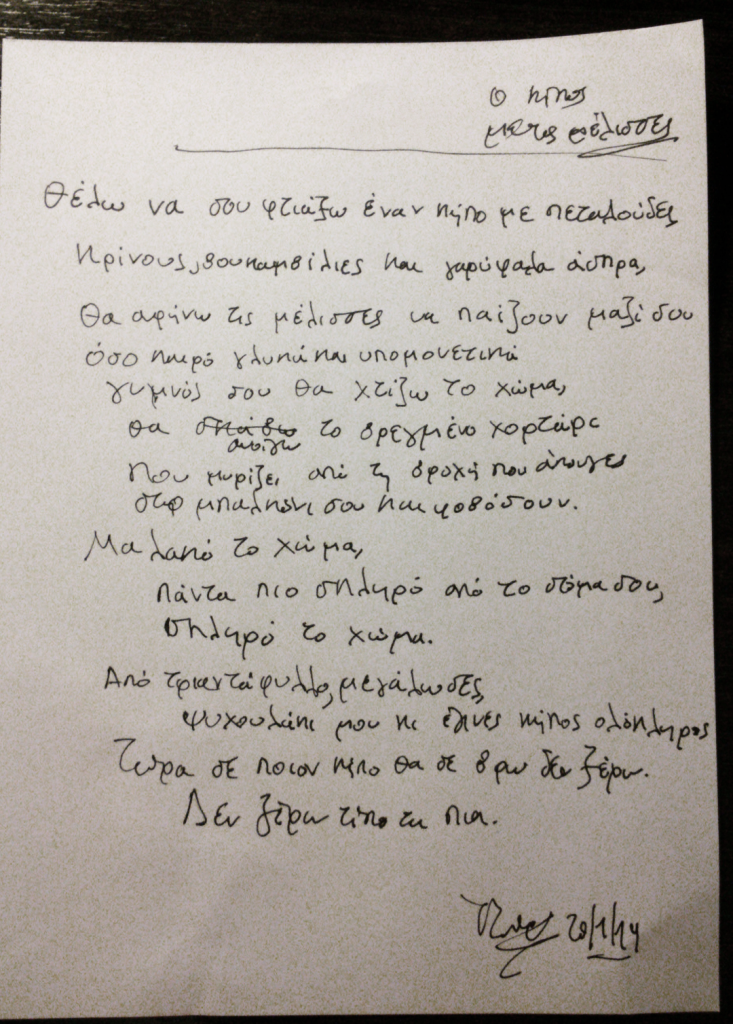 Ο κήπος
με τις μέλισσες
Θέλω να σου φτιάξω έναν κήπο με πεταλούδες
κρίνους, βουκαμβίλιες και γαρύφαλα άσπρα,
Θα αφήνω τις μέλισσες να παίζουν μαζί σου
όσο καιρό γλυκά και υπομονετικά
γυμνός σου θα χτίζω το χώμα,
θα ανοίγω το βρεγμένο χορτάρι
που μυρίζει από τη βροχή που άκουγες
στο μπαλκόνι σου και φοβόσουν.
Μαλακό το χώμα,
πάντα πιο σκληρό από το στόμα σου,
σκληρό το χώμα.
Από τριαντάφυλλο, μεγάλωσες,
ψυχουλάκι μου κι έγινες κήπος ολόκληρος
Τώρα σε ποιον κήπο θα σε βρω δεν ξέρω.
Δεν ξέρω τίποτα πια.
20/1/14